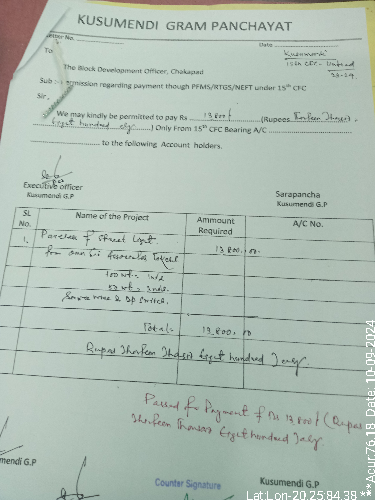 KUSUMENDI GRAM PANCHAYAT
Letter No.
Date
Kusumendi
15th CFC - Untied
23-24
To
The Block Development Officer, Chakapad
Sub :- Permission regarding payment though PFMS/RTGS/NEFT under 15th CFC
Sir,
We may kindly be permitted to pay Rs 13,800/- (Rupees Thirteen Thousand
Eight hundred only) Only From 15th CFC Bearing A/C
to the following Account holders.
Executive officer
Kusumendi G.P
Sarapancha
Kusumendi G.P
SL No. Name of the Project Ammount Required A/C No.
1. Purchase of Street Light 13,800.00
for
Service wire & DP Switch.
Total - 13,800.00
Rupees Thirteen Thousand Eight hundred Only
Passed for Payment of Rs 13,800/- (Rupees
Thirteen Thousand Eight hundred Only
mendi G.P
Counter Signature
Kusumendi G.P
Lat Lon-20.2584,84.38
***Acur:76.18 Date: 10-09-2024